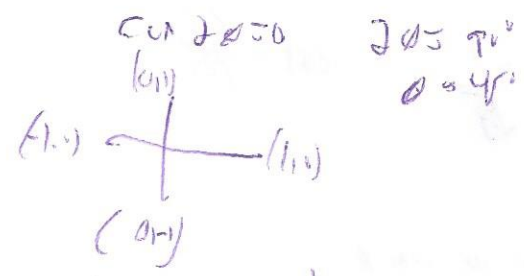 cos 2θ = 0 2θ = 90°
(0,1) θ = 45°
(-1,0) (1,0)
(0,-1)